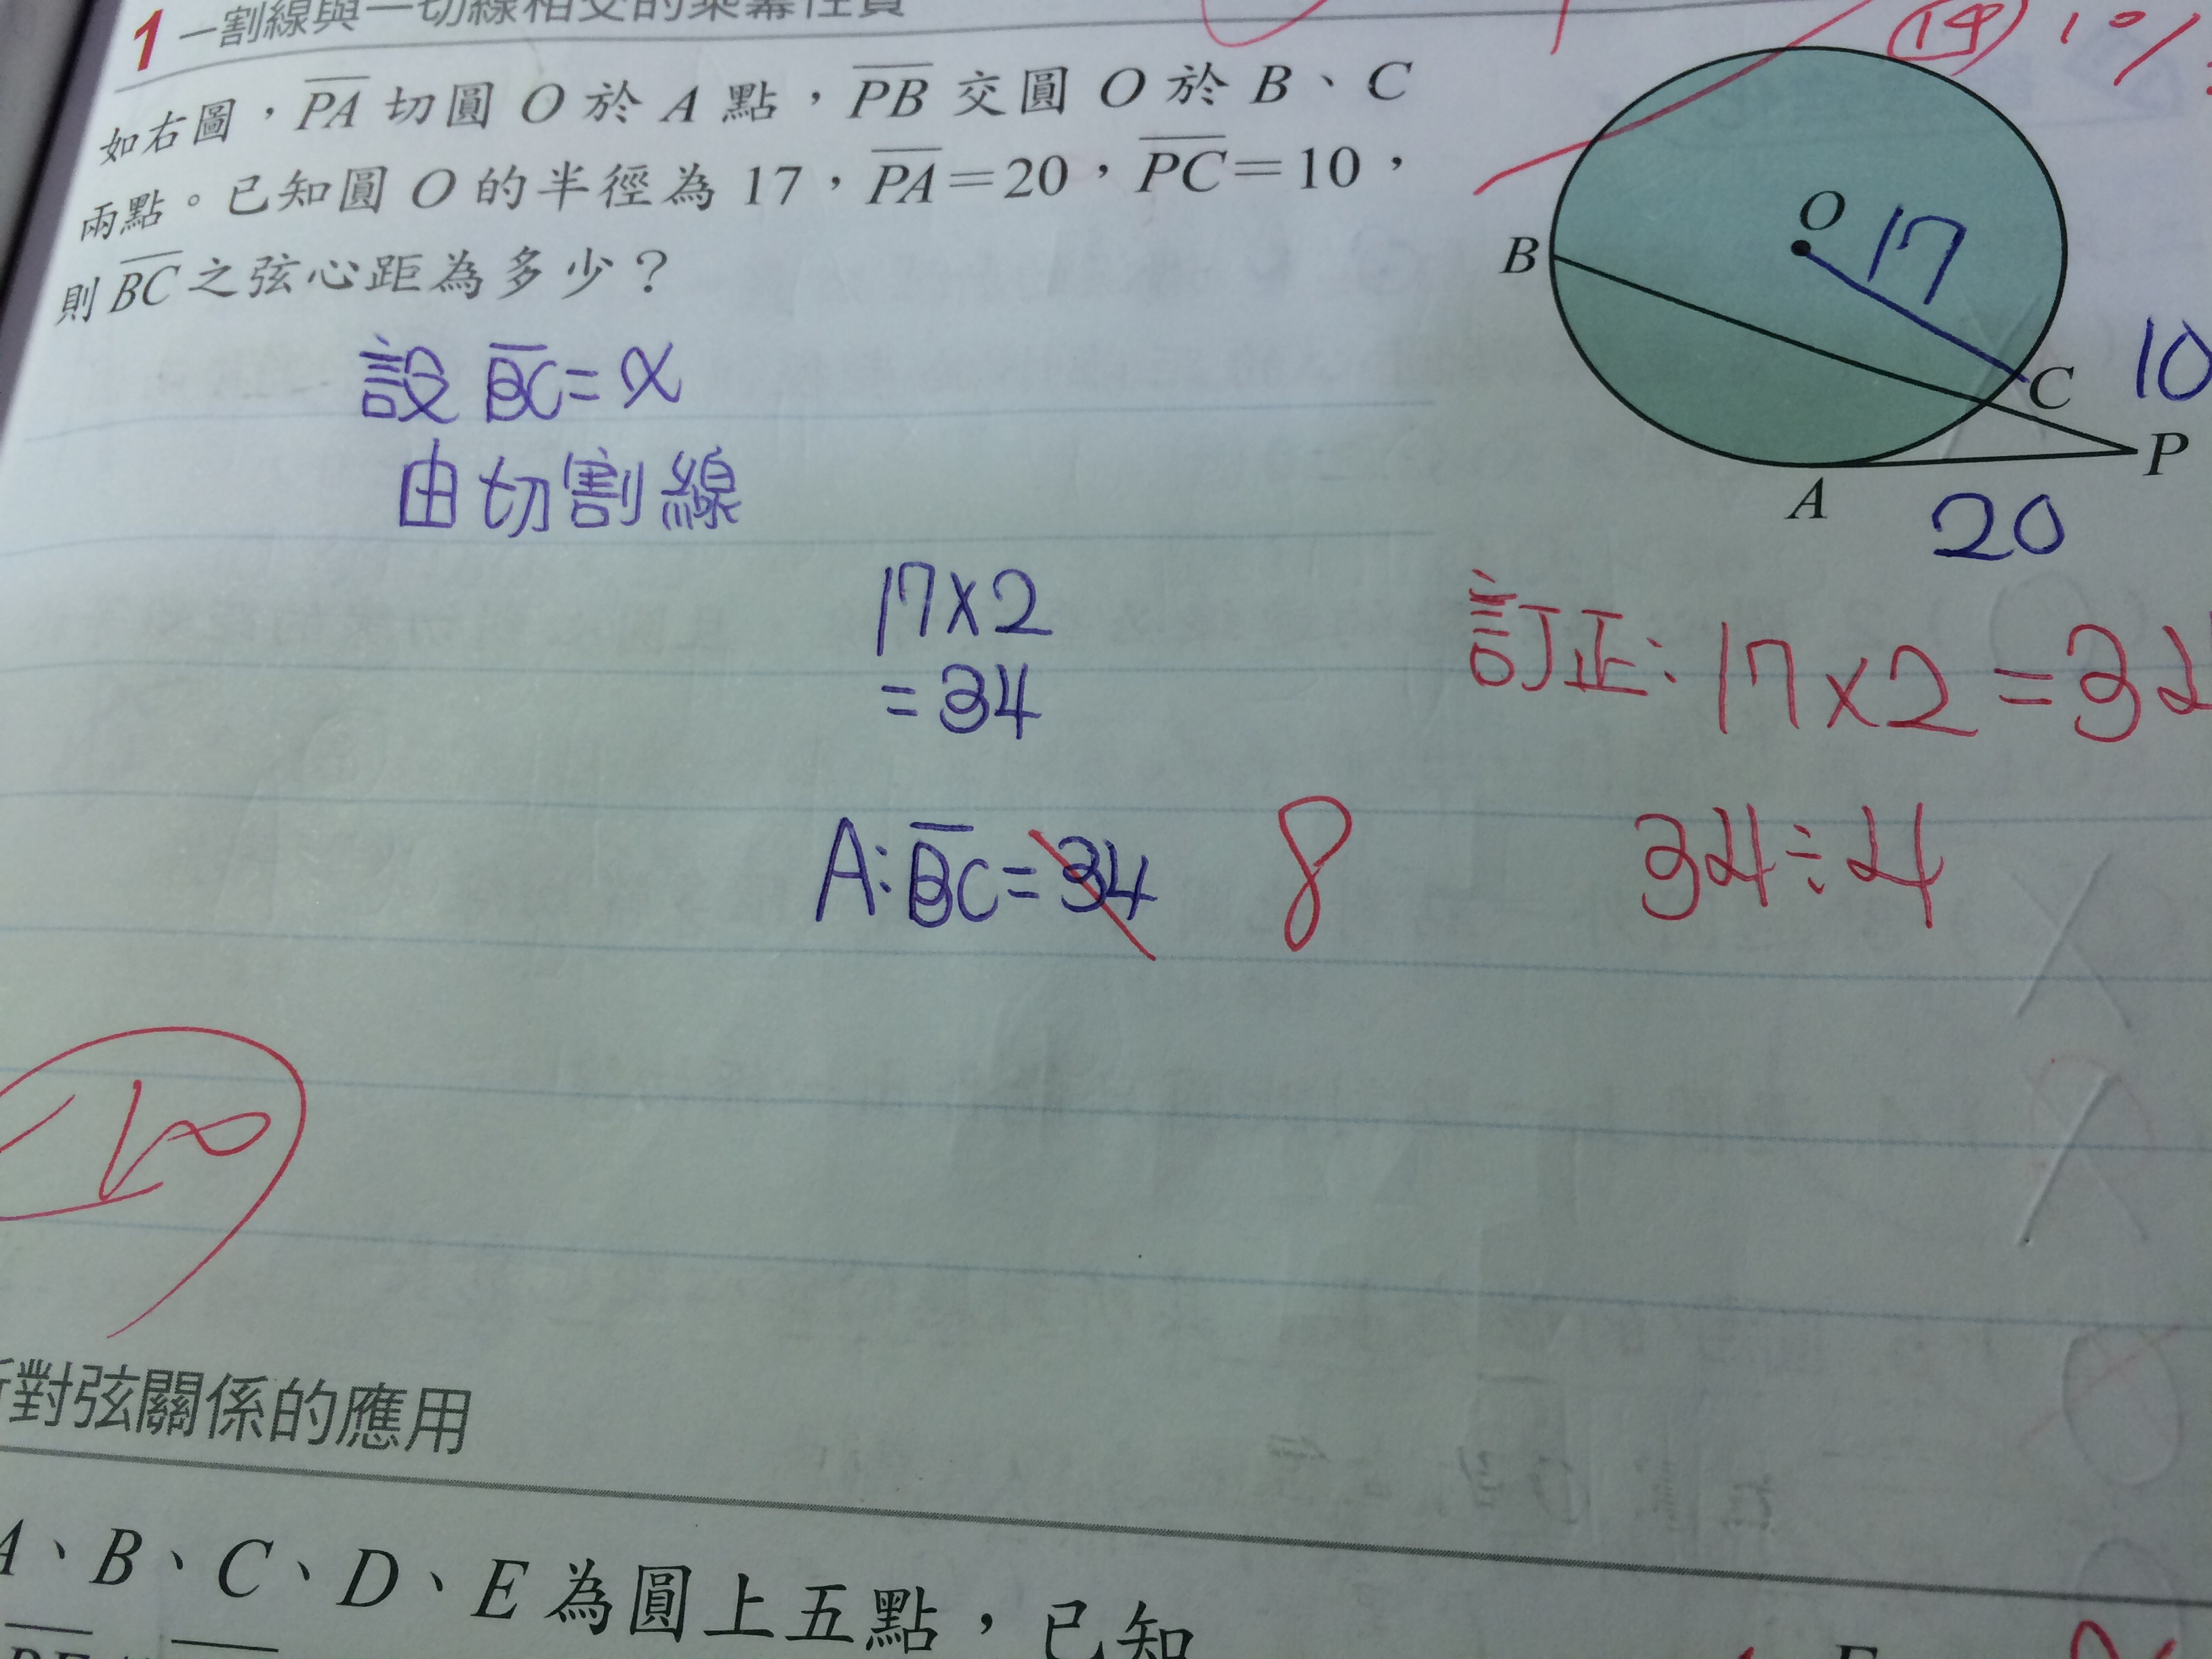 1 一割線與一切線相交的乘冪性質
如右圖，PA 切圓 O 於 A 點，PB 交圓 O 於 B、C
兩點。已知圓 O 的半徑為 17，PA=20，PC=10，
則 BC 之弦心距為多少？
O
17
B
C
10
P
A
20
設 BC=x
由切割線
17×2
=34
A:BC=34
8
訂正:17×2=34
34÷4
對弦關係的應用
A、B、C、D、E 為圓上五點，已知